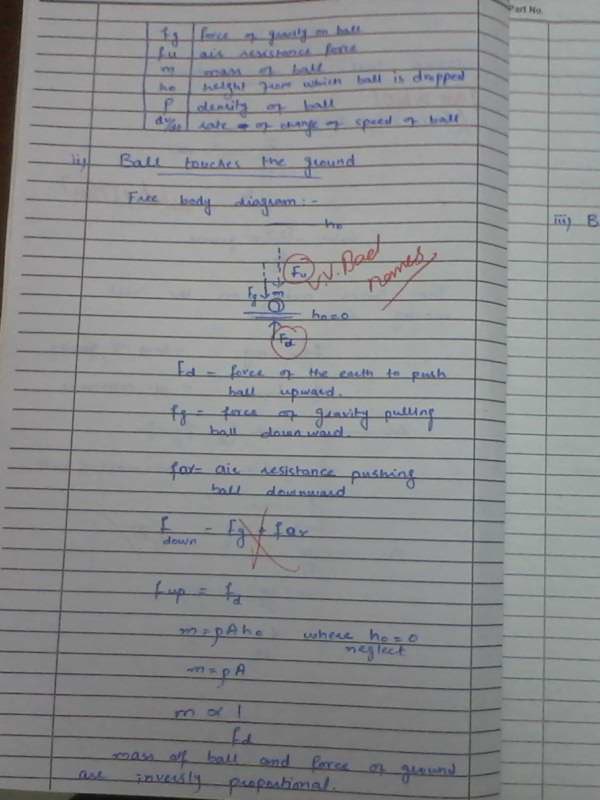 Part No.
Fg force of gravity on ball
Fu air resistance force
m mass of ball
ho height from which ball is dropped
ρ density of ball
dv/dt rate of change of speed of ball
ii) Ball touches the ground
Free body diagram:-
ho
iii) B
Fu V.V. Bad
names
Fg m
ho=0
Fd
Fd = force of the earth to push
ball upward.
Fg = force of gravity pulling
ball downward.
far- air resistance pushing
ball downward
F down = Fg + far
Fup = Fd
m=ρAho where ho=0
neglect
m=ρA
m ∝ 1
Fd
mass off ball and force of ground
are inversly proportional.